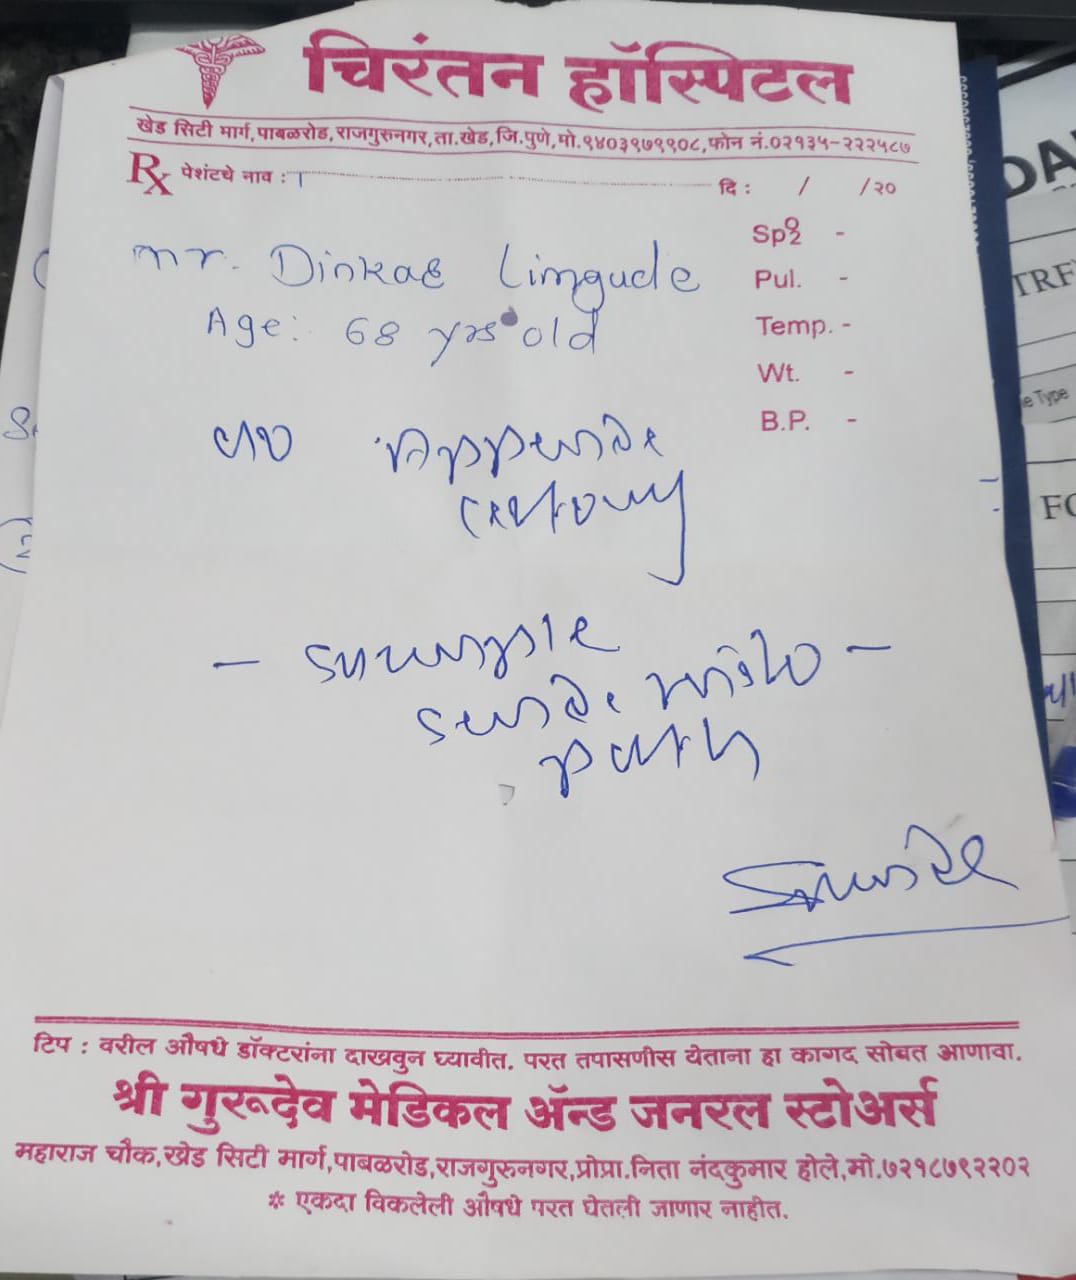 चिरंतन हॉस्पिटल
खेड सिटी मार्ग,पाबळरोड,राजगुरुनगर,ता.खेड,जि.पुणे,मो.९४०३९७९९०८,फोन नं.०२१३५-२२२५८७
Rx पेशंटचे नाव : दि : / /२०
Spo2 -
Mr. Dinkar Limgude
Pul. -
Age: 68 yrs old
Temp. -
Wt. -
B.P. -
Appende
cectomy
- sample
sende histo -
path
टिप : वरील औषधे डॉक्टरांना दाखवुन घ्यावीत. परत तपासणीस येताना हा कागद सोबत आणावा.
श्री गुरूदेव मेडिकल ॲन्ड जनरल स्टोअर्स
महाराज चौक,खेड सिटी मार्ग,पाबळरोड,राजगुरुनगर,प्रोप्रा.निता नंदकुमार होले,मो.७२१८७९२२०२
* एकदा विकलेली औषधे परत घेतली जाणार नाहीत.
FO
e Type